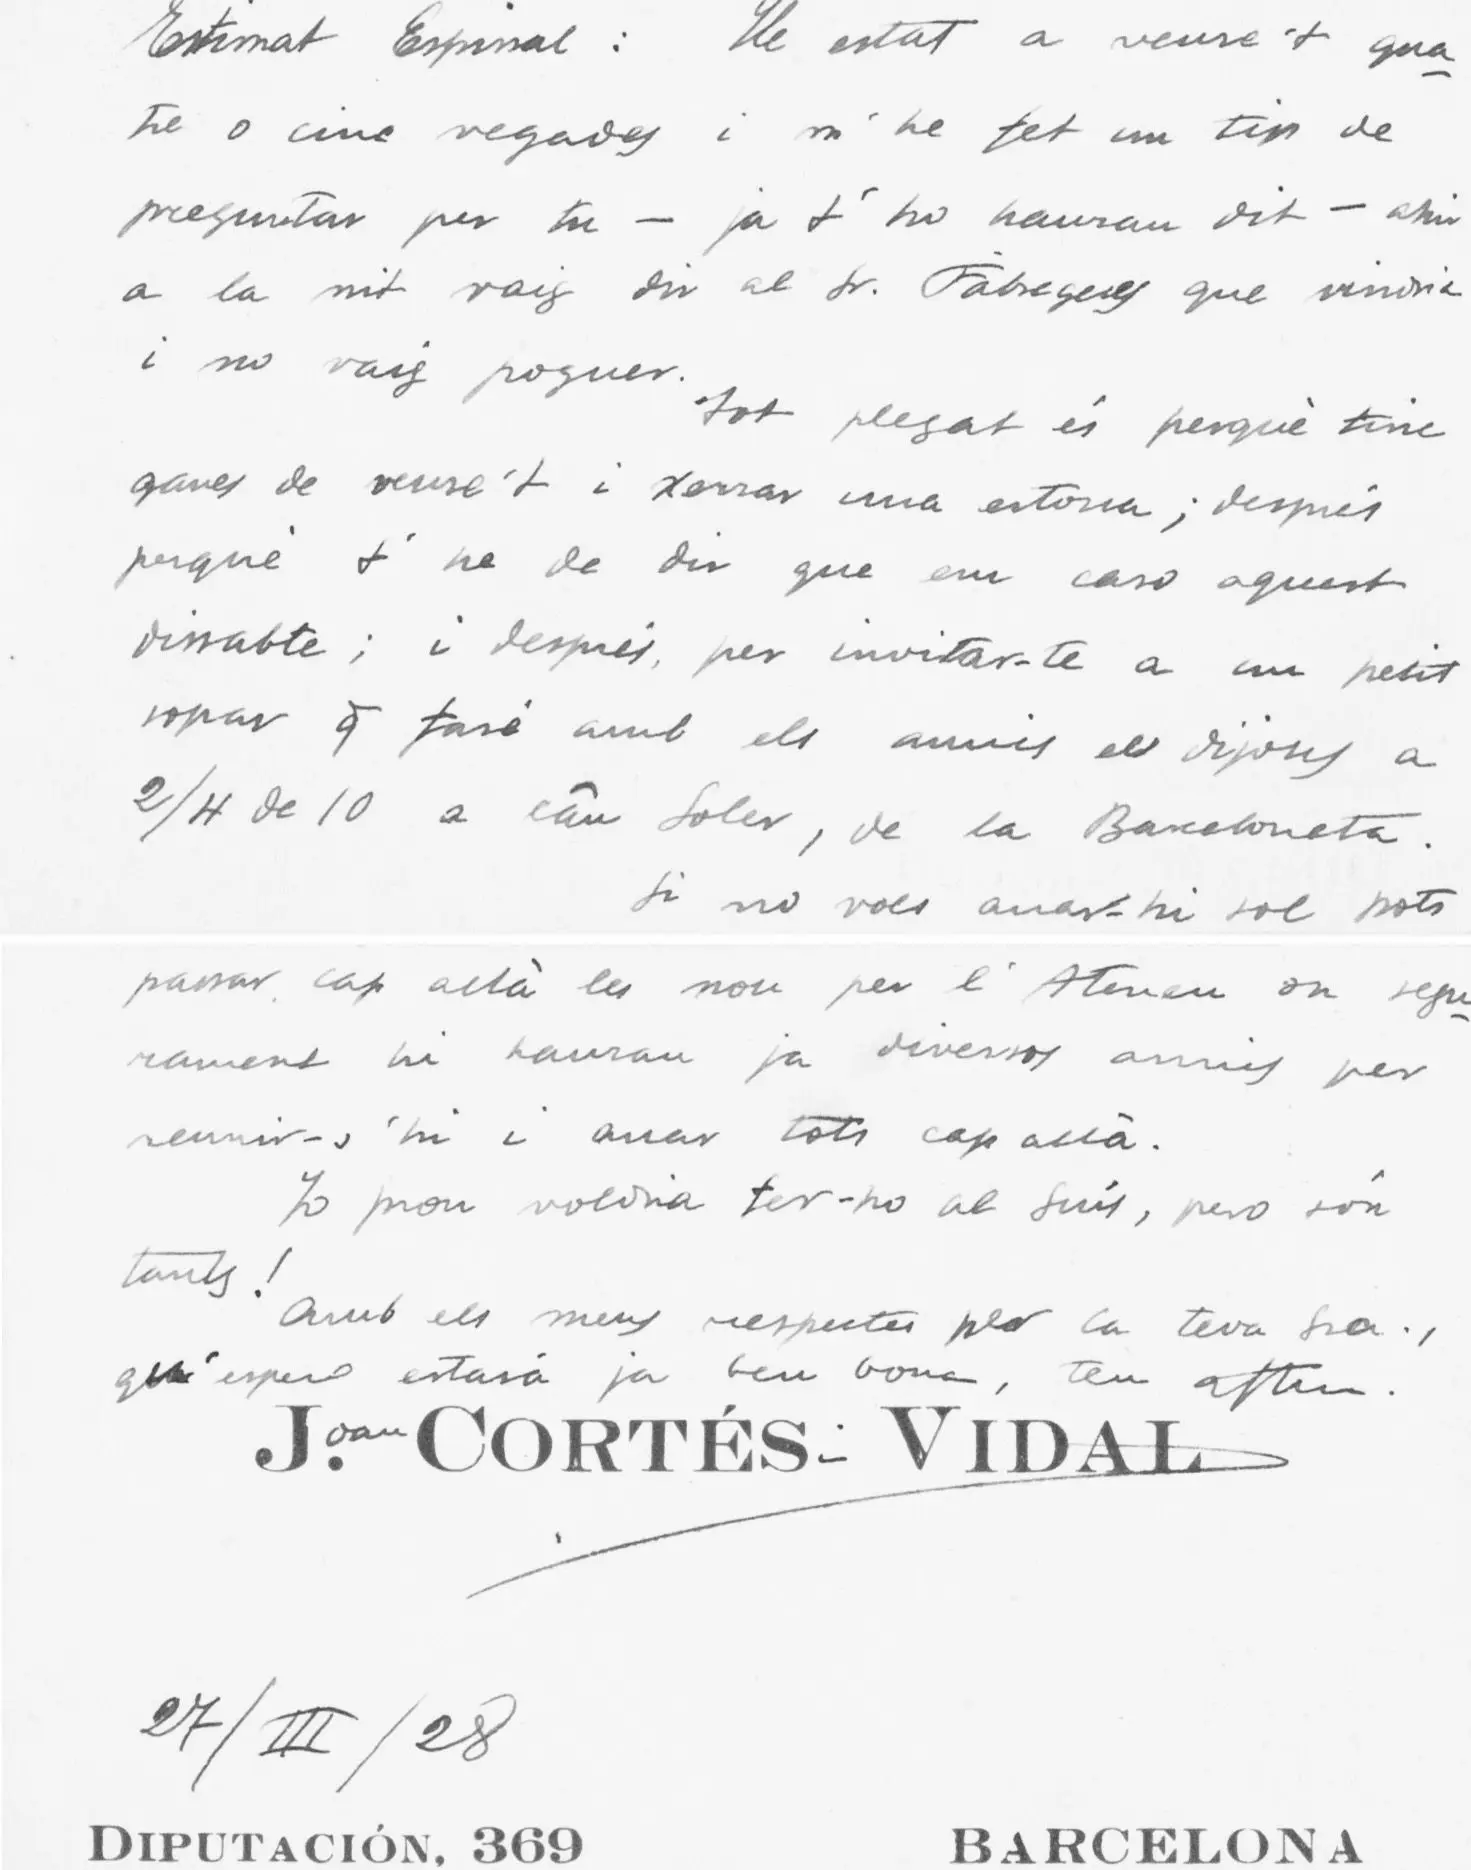 Estimat Espinal : He estat a veure't qua-
tre o cinc vegades i m'he fet un tip de
preguntar per tu — ja t'ho hauran dit — ahir
a la nit vaig dir al Sr. Fàbregues que vindria
i no vaig poguer.
Tot plegat és perquè tinc
ganes de veure't i xerrar una estona ; després
perquè t'he de dir que em caso aquest
dissabte ; i després, per invitar-te a un petit
sopar q̄ faré amb els amics el dijous a
2/4 de 10 a cân Soler, de la Barceloneta.
Si no vols anar-hi sol pots
passar cap allà les nou per l'Ateneu on segu-
rament hi hauran ja diversos amics per
reunir-s'hi i anar tots cap allà.
Jo prou voldria fer-ho al Suís, pero són
tants !
Amb els meus respectes per la teva Sra.,
que espero estarà ja ben bona, teu affm.
Joan CORTÉS i VIDAL
27/III/28
DIPUTACIÓN, 369 BARCELONA